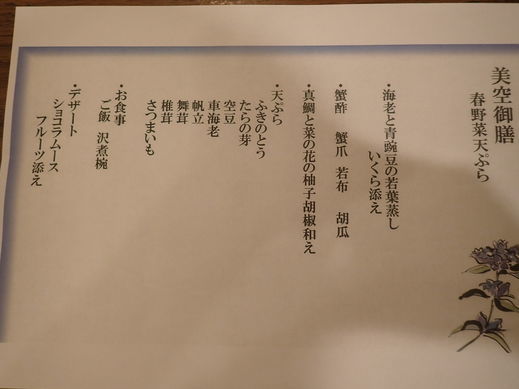 美空御膳
春野菜天ぷら
・海老と青豌豆の若葉蒸し
いくら添え
・蟹酢 蟹爪 若布 胡瓜
・真鯛と菜の花の柚子胡椒和え
・天ぷら
ふきのとう
たらの芽
空豆
車海老
帆立
舞茸
椎茸
さつまいも
・お食事
ご飯 沢煮椀
・デザート
ショコラムース
フルーツ添え